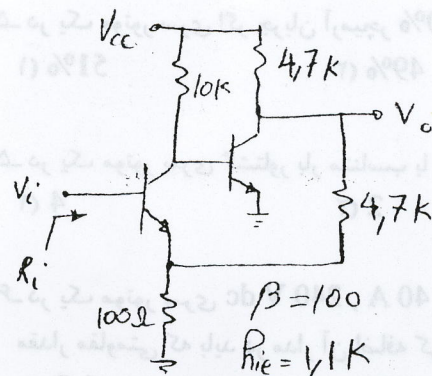 Vcc
10K
4,7K
Vo
Vi
4,7K
Ri
100Ω
β=100
hie= 1,1K